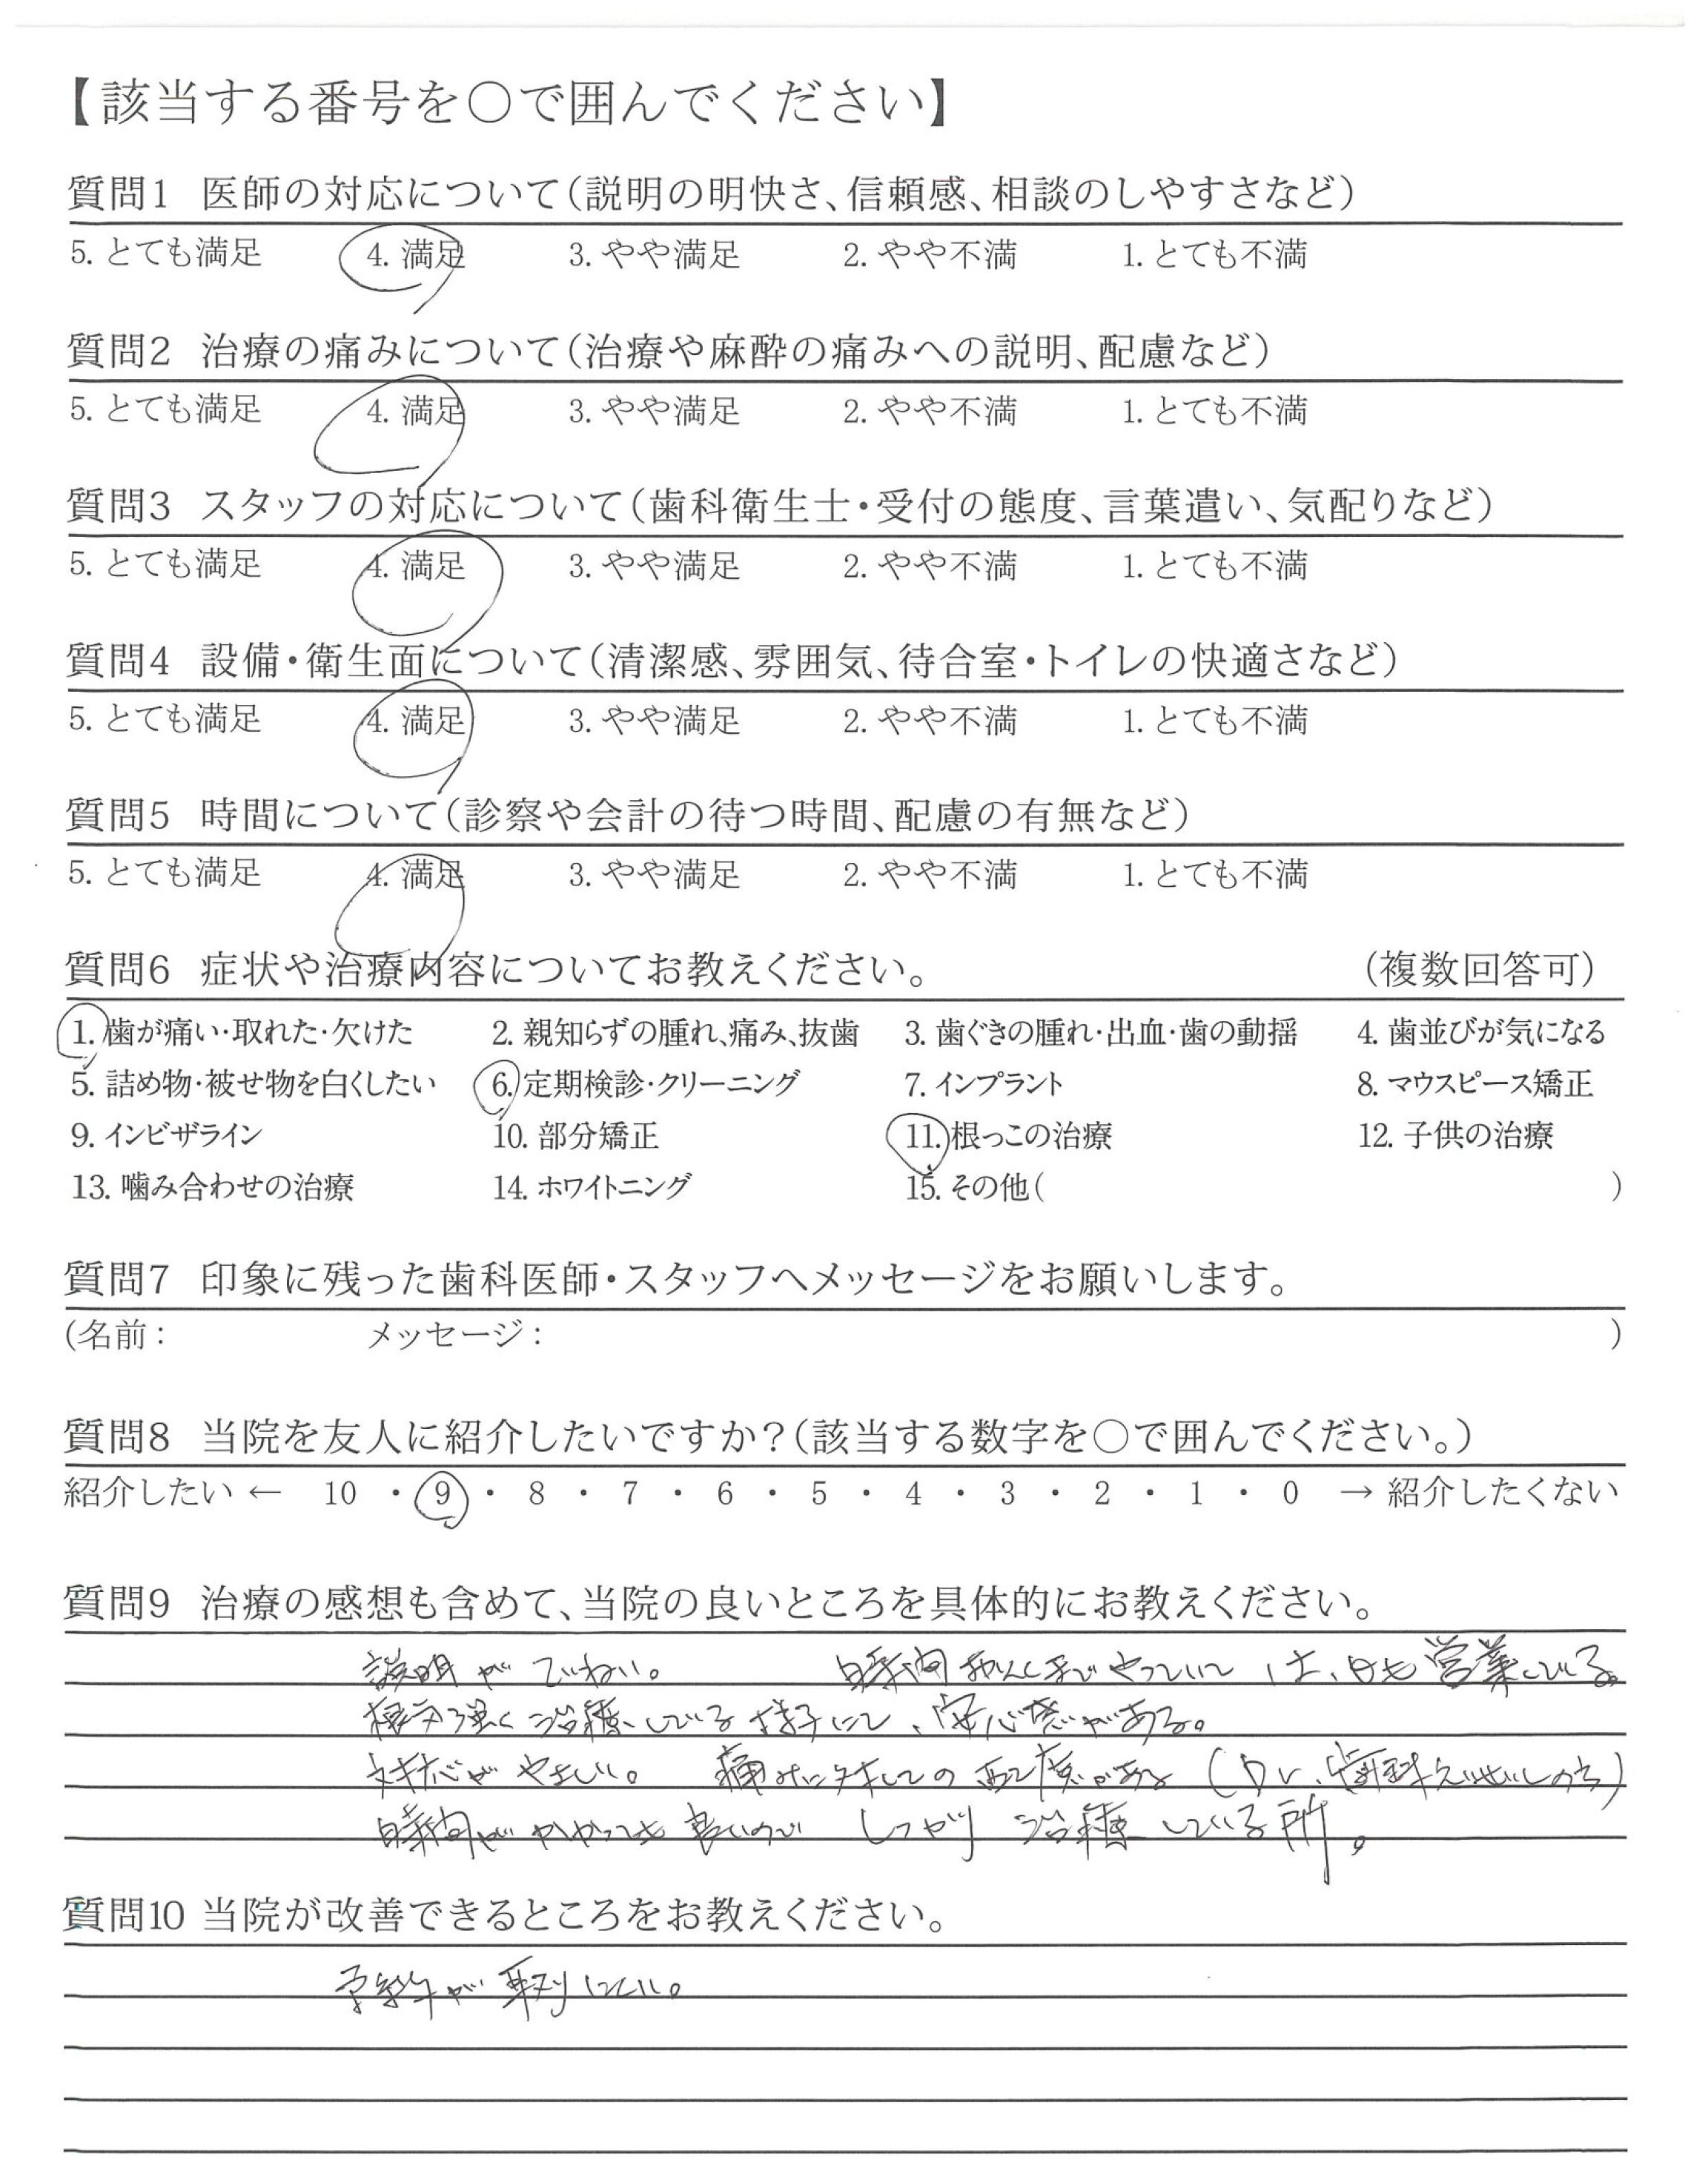 【該当する番号を〇で囲んでください】
質問1 医師の対応について(説明の明快さ、信頼感、相談のしやすさなど)
5. とても満足 4. 満足 3. やや満足 2. やや不満 1. とても不満
質問2 治療の痛みについて(治療や麻酔の痛みへの説明、配慮など)
5. とても満足 4. 満足 3. やや満足 2. やや不満 1. とても不満
質問3 スタッフの対応について(歯科衛生士・受付の態度、言葉遣い、気配りなど)
5. とても満足 4. 満足 3. やや満足 2. やや不満 1. とても不満
質問4 設備・衛生面について(清潔感、雰囲気、待合室・トイレの快適さなど)
5. とても満足 4. 満足 3. やや満足 2. やや不満 1. とても不満
質問5 時間について(診察や会計の待つ時間、配慮の有無など)
5. とても満足 4. 満足 3. やや満足 2. やや不満 1. とても不満
質問6 症状や治療内容についてお教えください。 (複数回答可)
1. 歯が痛い・取れた・欠けた 2. 親知らずの腫れ、痛み、抜歯 3. 歯ぐきの腫れ・出血・歯の動揺 4. 歯並びが気になる
5. 詰め物・被せ物を白くしたい 6. 定期検診・クリーニング 7. インプラント 8. マウスピース矯正
9. インビザライン 10. 部分矯正 11. 根っこの治療 12. 子供の治療
13. 噛み合わせの治療 14. ホワイトニング 15. その他( )
質問7 印象に残った歯科医師・スタッフへメッセージをお願いします。
(名前: メッセージ: )
質問8 当院を友人に紹介したいですか?(該当する数字を〇で囲んでください。)
紹介したい ← 10 ・ 9 ・ 8 ・ 7 ・ 6 ・ 5 ・ 4 ・ 3 ・ 2 ・ 1 ・ 0 → 紹介したくない
質問9 治療の感想も含めて、当院の良いところを具体的にお教えください。
説明がていねい。 時間 までやっていて 土、日も営業している。
根気強く治療している様子にて、安心感がある。
対応がやさしい。 痛みに対しての配慮がある (Dr、歯科えいせいしの方)
時間がかかっても良いので しっかり治療している所。
質問10 当院が改善できるところをお教えください。
予約が取りにくい。